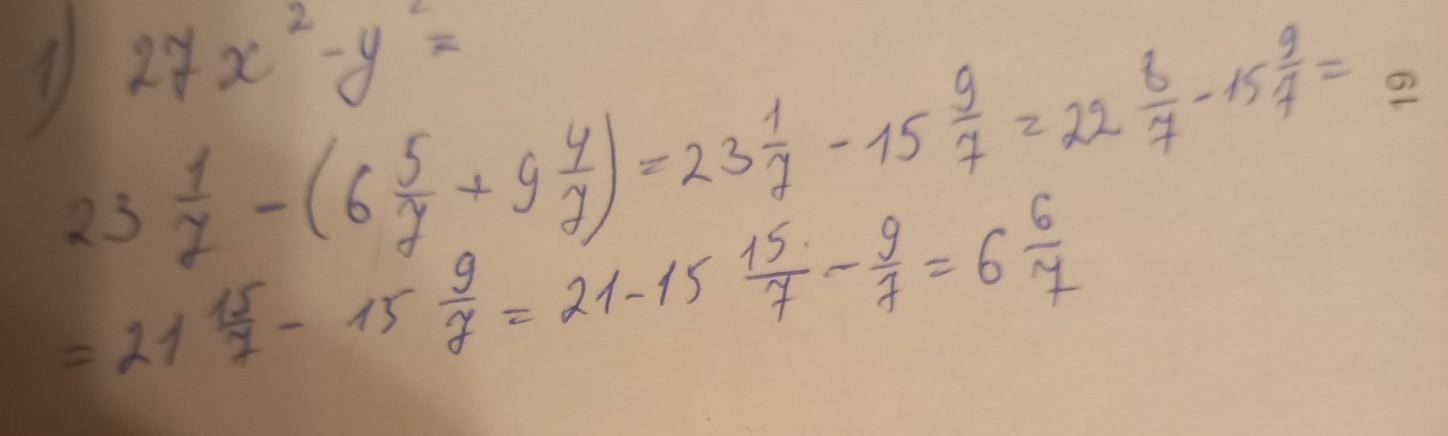 1) 27x² - y² =
23 1/7 - (6 5/7 + 9 4/7) = 23 1/7 - 15 9/7 = 22 8/7 - 15 9/7 =
= 21 15/7 - 15 9/7 = 21 - 15 15/7 - 9/7 = 6 6/7
19